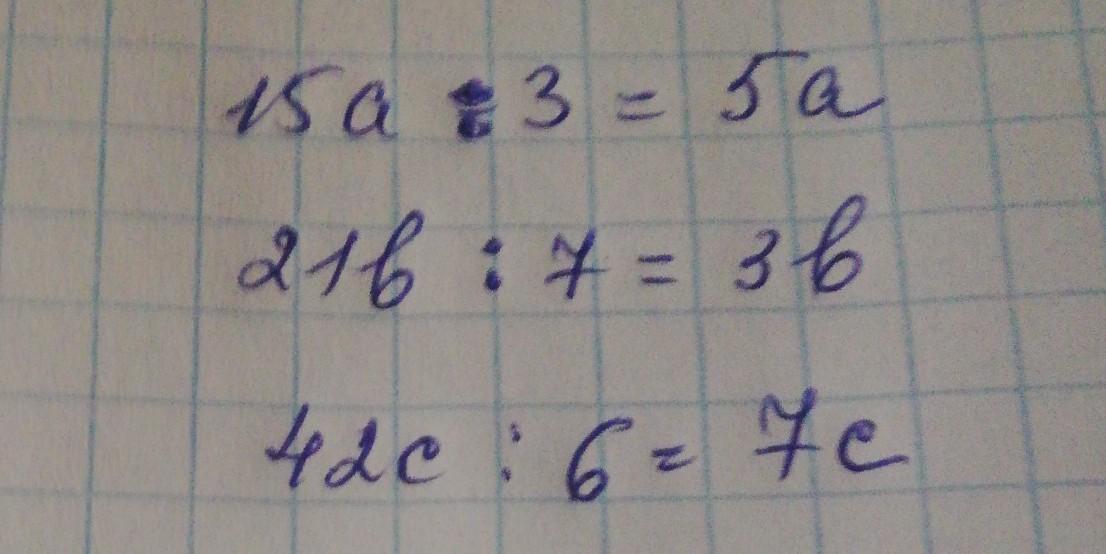 15a : 3 = 5a
21b : 7 = 3b
42c : 6 = 7c